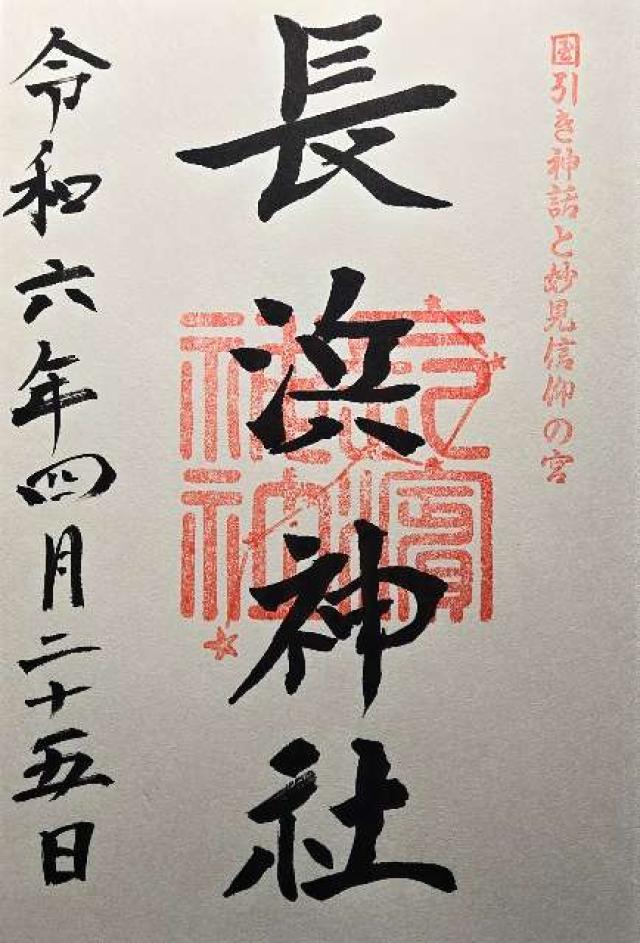 国引き神話と妙見信仰の宮
長浜神社
令和六年四月二十五日